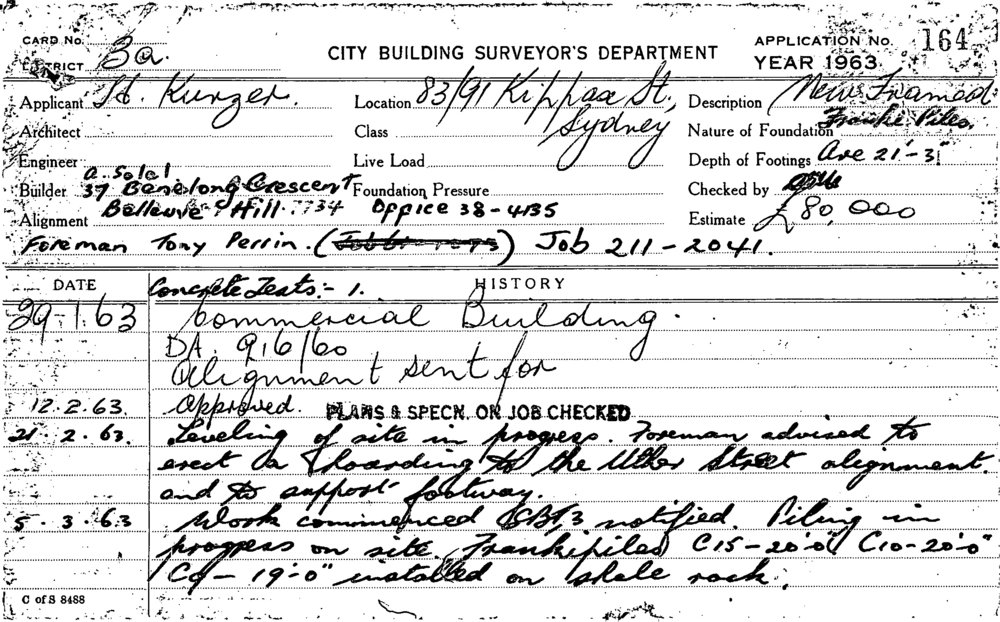 CARD No.
DISTRICT 3a.
CITY BUILDING SURVEYOR'S DEPARTMENT
APPLICATION No. 164
YEAR 1963
Applicant H. Kurzer.
Location 83/91 Kippax St, Sydney
Description New Framed
Architect
Class
Nature of Foundation Franki Piles.
Engineer
Live Load
Depth of Footings Ave 21'-3"
Builder A. Solal 37 Benelong Crescent
Foundation Pressure
Checked by
Alignment Bellevue Hill. 7734 Office 38-4135
Estimate £80,000
Foreman Tony Perrin. Job 211-2041.
DATE
HISTORY
Concrete Tests:- 1.
29.1.63 Commercial Building.
DA. 916/60
Alignment sent for
12.2.63. Approved. PLANS & SPECN. ON JOB CHECKED
21.2.63. Leveling of site in progress. Foreman advised to
erect a hoarding to the Uther Street alignment.
and to support footway.
5.3.63 Work commenced notified. Piling in
progress on site. Frankipiles C15-20'0" C10-20'-0"
C9-19'-0" installed on shale rock.
C of S 8488